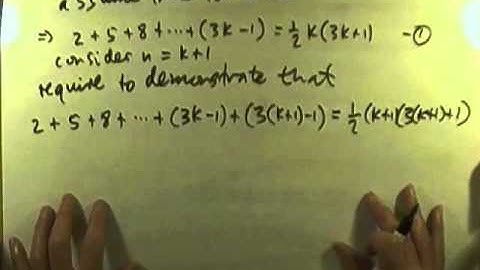 ⇒ 2 + 5 + 8 + ··· + (3k - 1) = ½ k (3k + 1) - ①
consider n = k + 1
require to demonstrate that
2 + 5 + 8 + ··· + (3k - 1) + (3(k+1) - 1) = ½ (k+1)(3(k+1)+1)